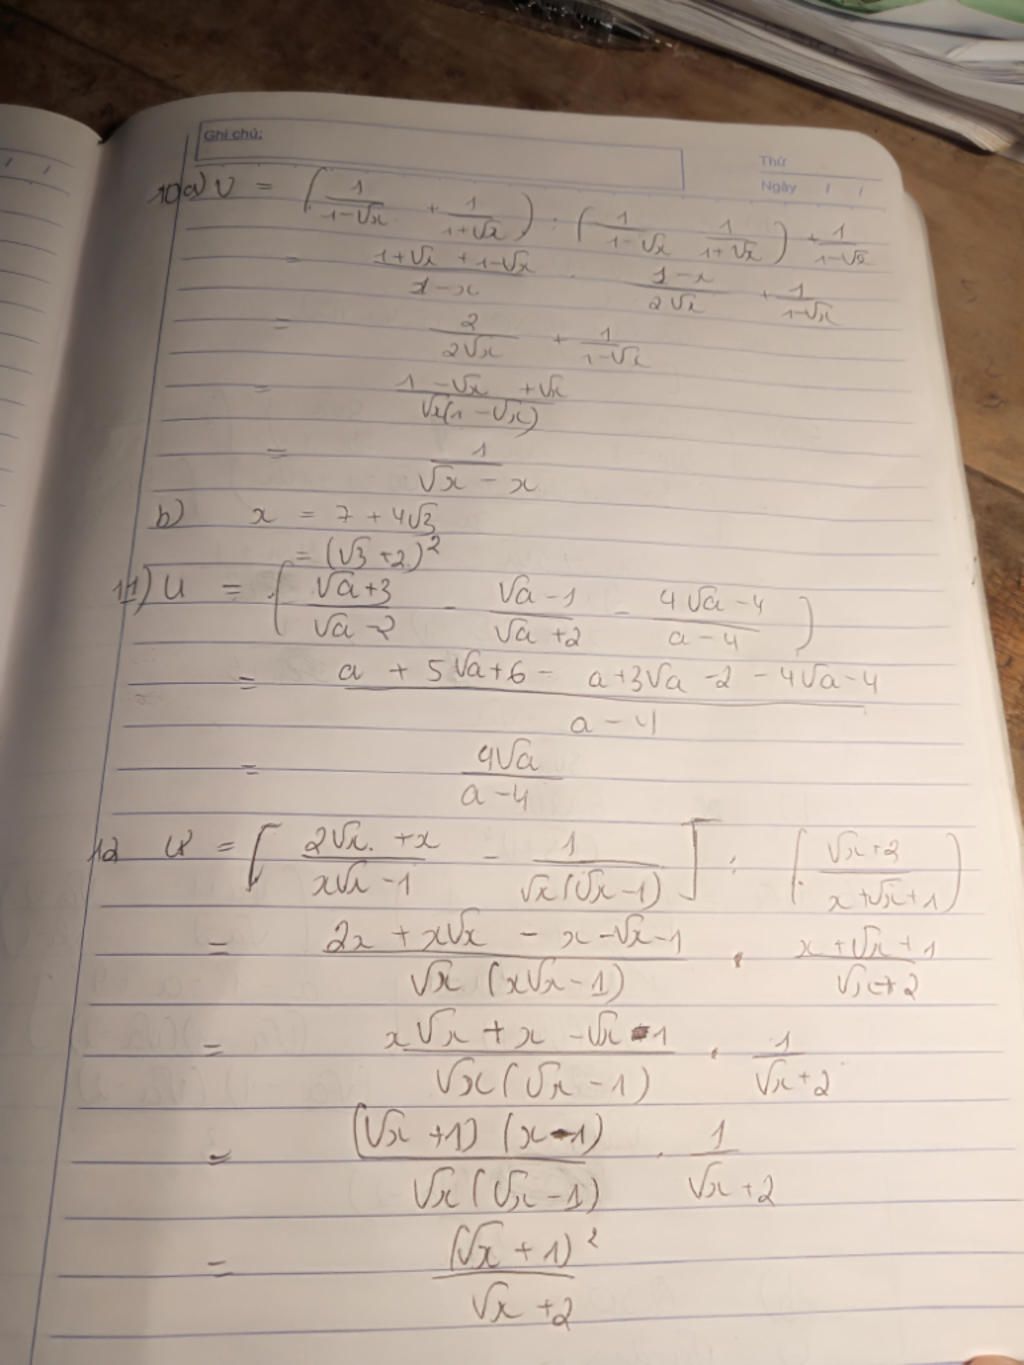 Ghi chú:
Thứ
Ngày / /
10a) V = (1/(1-√x) + 1/(1+√x)) : (1/(1-√x) 1/(1+√x)) + 1/(1-√x)
= (1+√x+1-√x)/(1-x) · (1-x)/(2√x) + 1/(1-√x)
= 2/(2√x) + 1/(1-√x)
= (1-√x+√x)/(√x(1-√x))
= 1/(√x-x)
b) x = 7 + 4√3
= (√3+2)²
11) U = ((√a+3)/(√a-2) - (√a-1)/(√a+2) - (4√a-4)/(a-4))
= (a + 5√a+6 - a+3√a-2 - 4√a-4)/(a-4)
= 4√a/(a-4)
12 = [(2√x+x)/(x√x-1) - 1/(√x(√x-1))] : ((√x+2)/(x+√x+1))
= (2x + x√x - x-√x-1)/(√x(x√x-1)) · (x+√x+1)/(√x+2)
= (x√x+x-√x-1)/(√x(√x-1)) · 1/(√x+2)
= (√x+1)(x-1)/(√x(√x-1)) · 1/(√x+2)
= (√x+1)²/(√x+2)